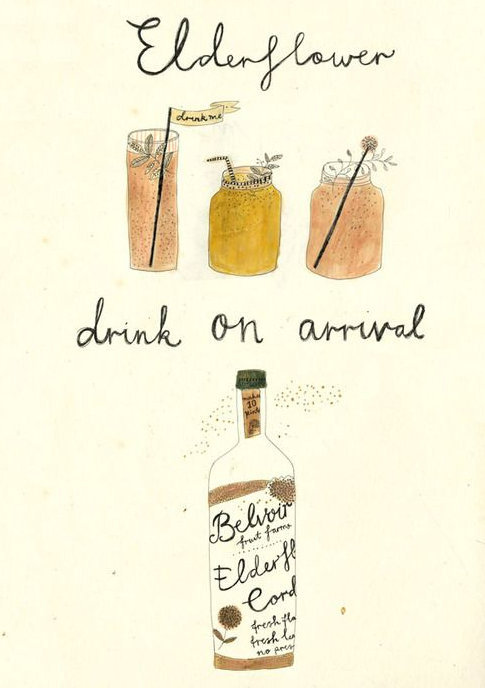 Elderflower
drink me
drink on arrival
makes
10
pints
Belvoir
fruit farms
Elderfl
Cord
fresh flo
fresh le
no pres